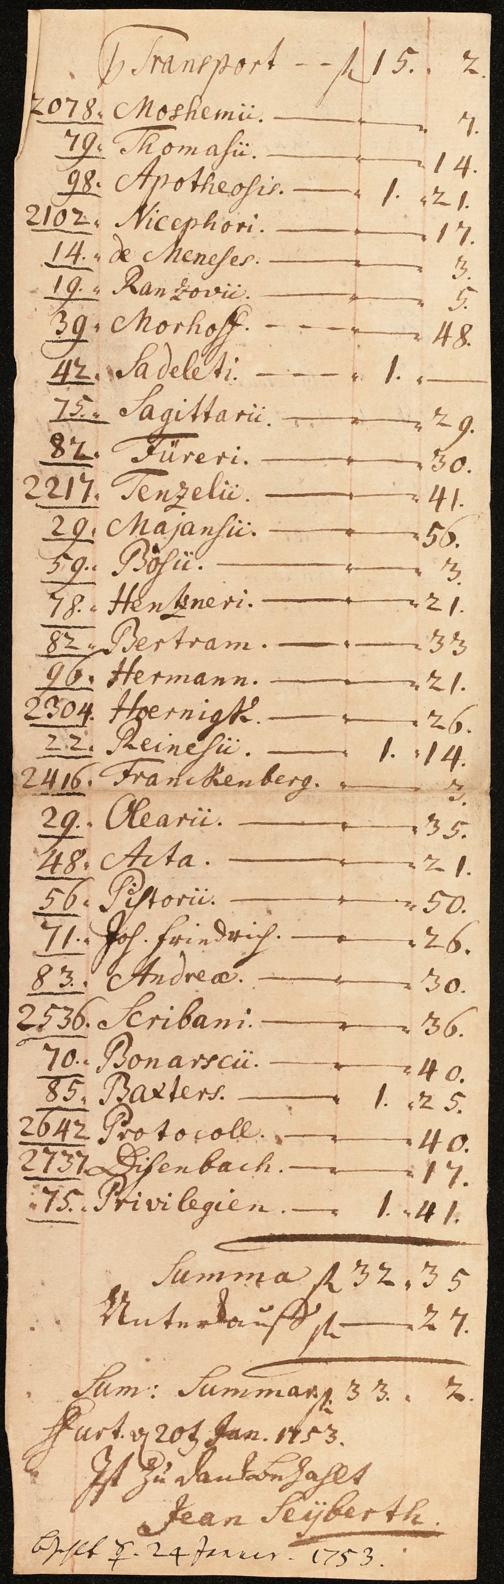 Transport -- fl 15. 2.
2078. Moshemii. — 7.
79. Thomasii. — 14.
98. Apotheosis. — 1. 21.
2102. Nicephori. — 17.
14. de Meneses. — 3.
19. Ranzovii. — 5.
39. Morhoff. — 48.
42. Sadeleti. — 1. —
75. Sagittarii. — 29.
82. Füreri. — 30.
2217. Tenzelii. — 41.
29. Majansii. — 56.
59. Bösii. — 3.
78. Hentzneri. — 21.
82. Bertram. — 33
96. Hermann. — 21.
2304. Hoernigk. — 26.
22. Reinesii. — 1. 14.
2416. Franckenberg. — 3.
29. Olearii. — 35.
48. Acta. — 21.
56. Pistorii. — 50.
71. Joh. Friedrich. — 26.
83. Andreæ. — 30.
2536. Scribani. — 36.
70. Bonarscii. — 40.
85. Baxters. — 1. 25.
2642 Protocoll. — 40.
2737 Disenbach. — 17.
75. Privilegien. — 1. 41.
Summa fl 32. 35
Unterkauff fl — 27.
Sum: Summar. fl. 33. 2.
Jan. 1753.
Ist zu danck bezahlt
Jean Seÿberth.
24 1753.